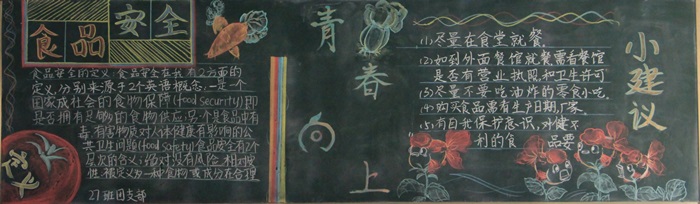 食品安全
食品安全的定义:食品安全在我有2方面的
定义,分别来源于2个英语概念,一是一个
国家或社会的食物保障(food security)即
是否拥有足够的食物供应,另个是食品中有
毒,有害物质对人体健康有影响的公
共卫生问题(food safety)食品安全有2个
层次的含义:绝对没有风险,相对安
性,被定义为一种食物或成分在合理
27班团支部
定义
青春
向上
小建议
(1)尽量在食堂就餐.
(2)如到外面餐馆就餐需看餐馆
是否有营业执照和卫生许可
(3)尽量不要吃油炸的零食小吃.
(4)购买食品需看生产日期,厂家.
(5)有自我保护意识,对健不
利的食品要